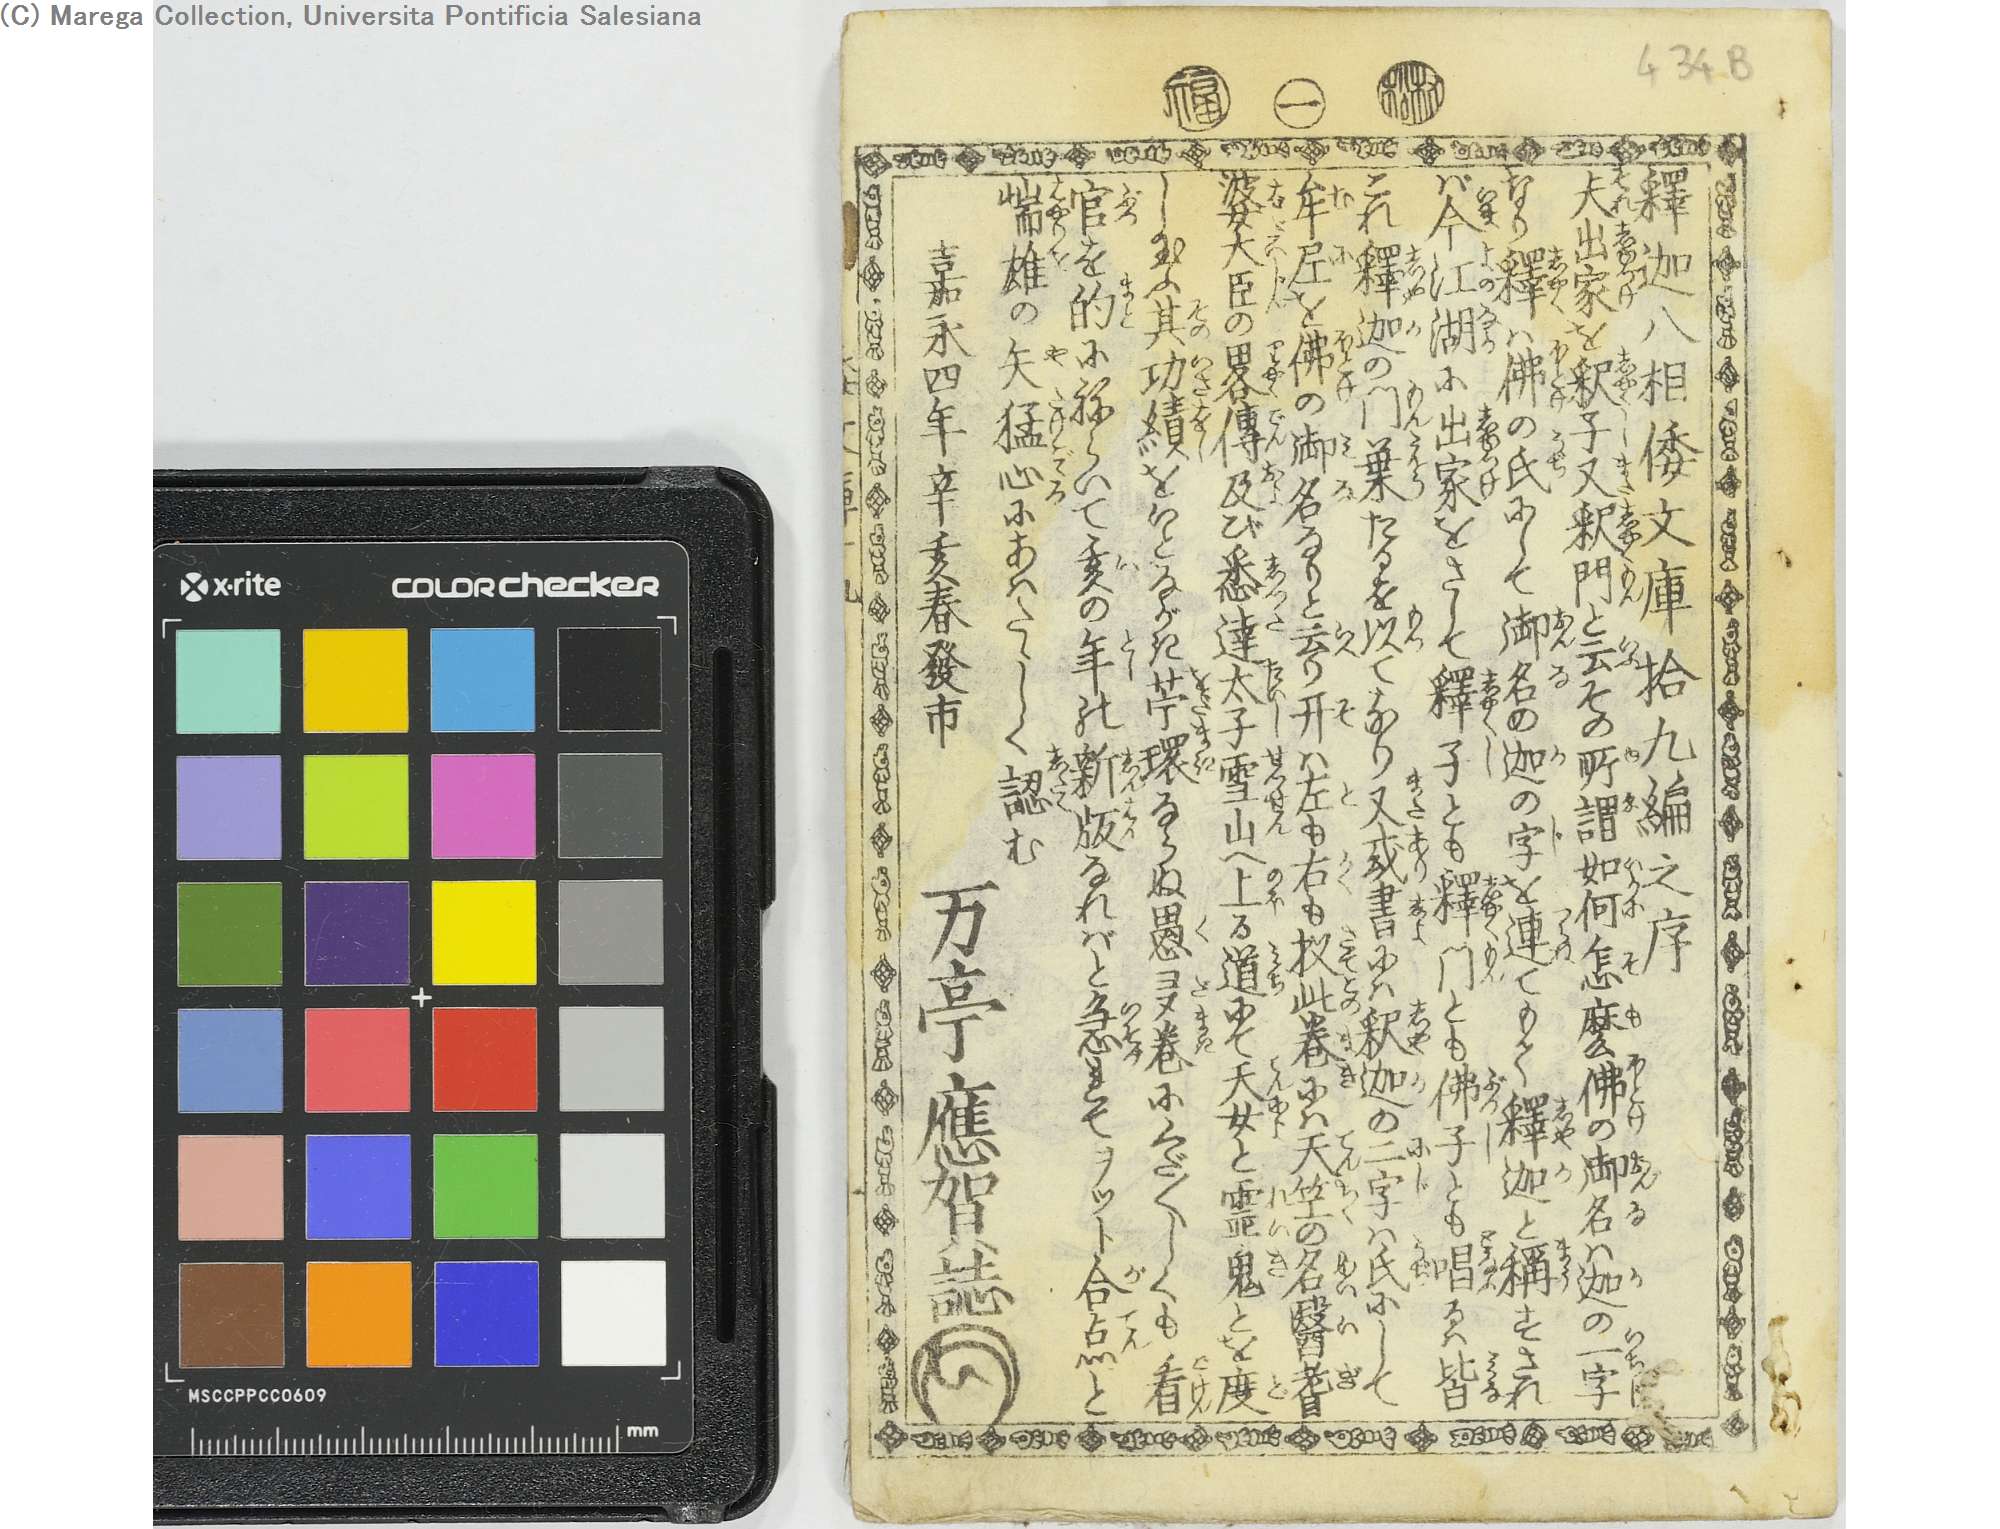 (C) Marega Collection, Universita Pontificia Salesiana
434B
福 一 林
釋迦八相倭文庫拾九編之序
夫出家を釈子又釈門と云その所謂如何怎麼佛の御名ハ迦の一字
なり釋ハ佛の氏にして御名の迦の字を連てもて釋迦と稱せされ
バ今江湖に出家をさして釋子とも釋門とも佛子とも唱るハ皆
これ釋迦の門葉たるを以てなり又或書にハ釈迦の二字ハ氏にして
牟尼を佛の御名なりと云り开ハ左も右も扨此巻にハ天竺の名醫耆
波大臣の畧傳及び悉達太子雪山へ上る道にて天女と霊鬼とを度
し玉ふ其功績をいとながき苧環ならぬ愚ヨタ巻にくだくしくも看
官を的にねらいて亥の年の新版なれバと急きてヲツト合点と
喘雄の矢猛心にあハたゝしく認む
嘉永四年辛亥春發市
万亭應賀誌
x-rite
colorchecker
MSCCPPCC0609
mm